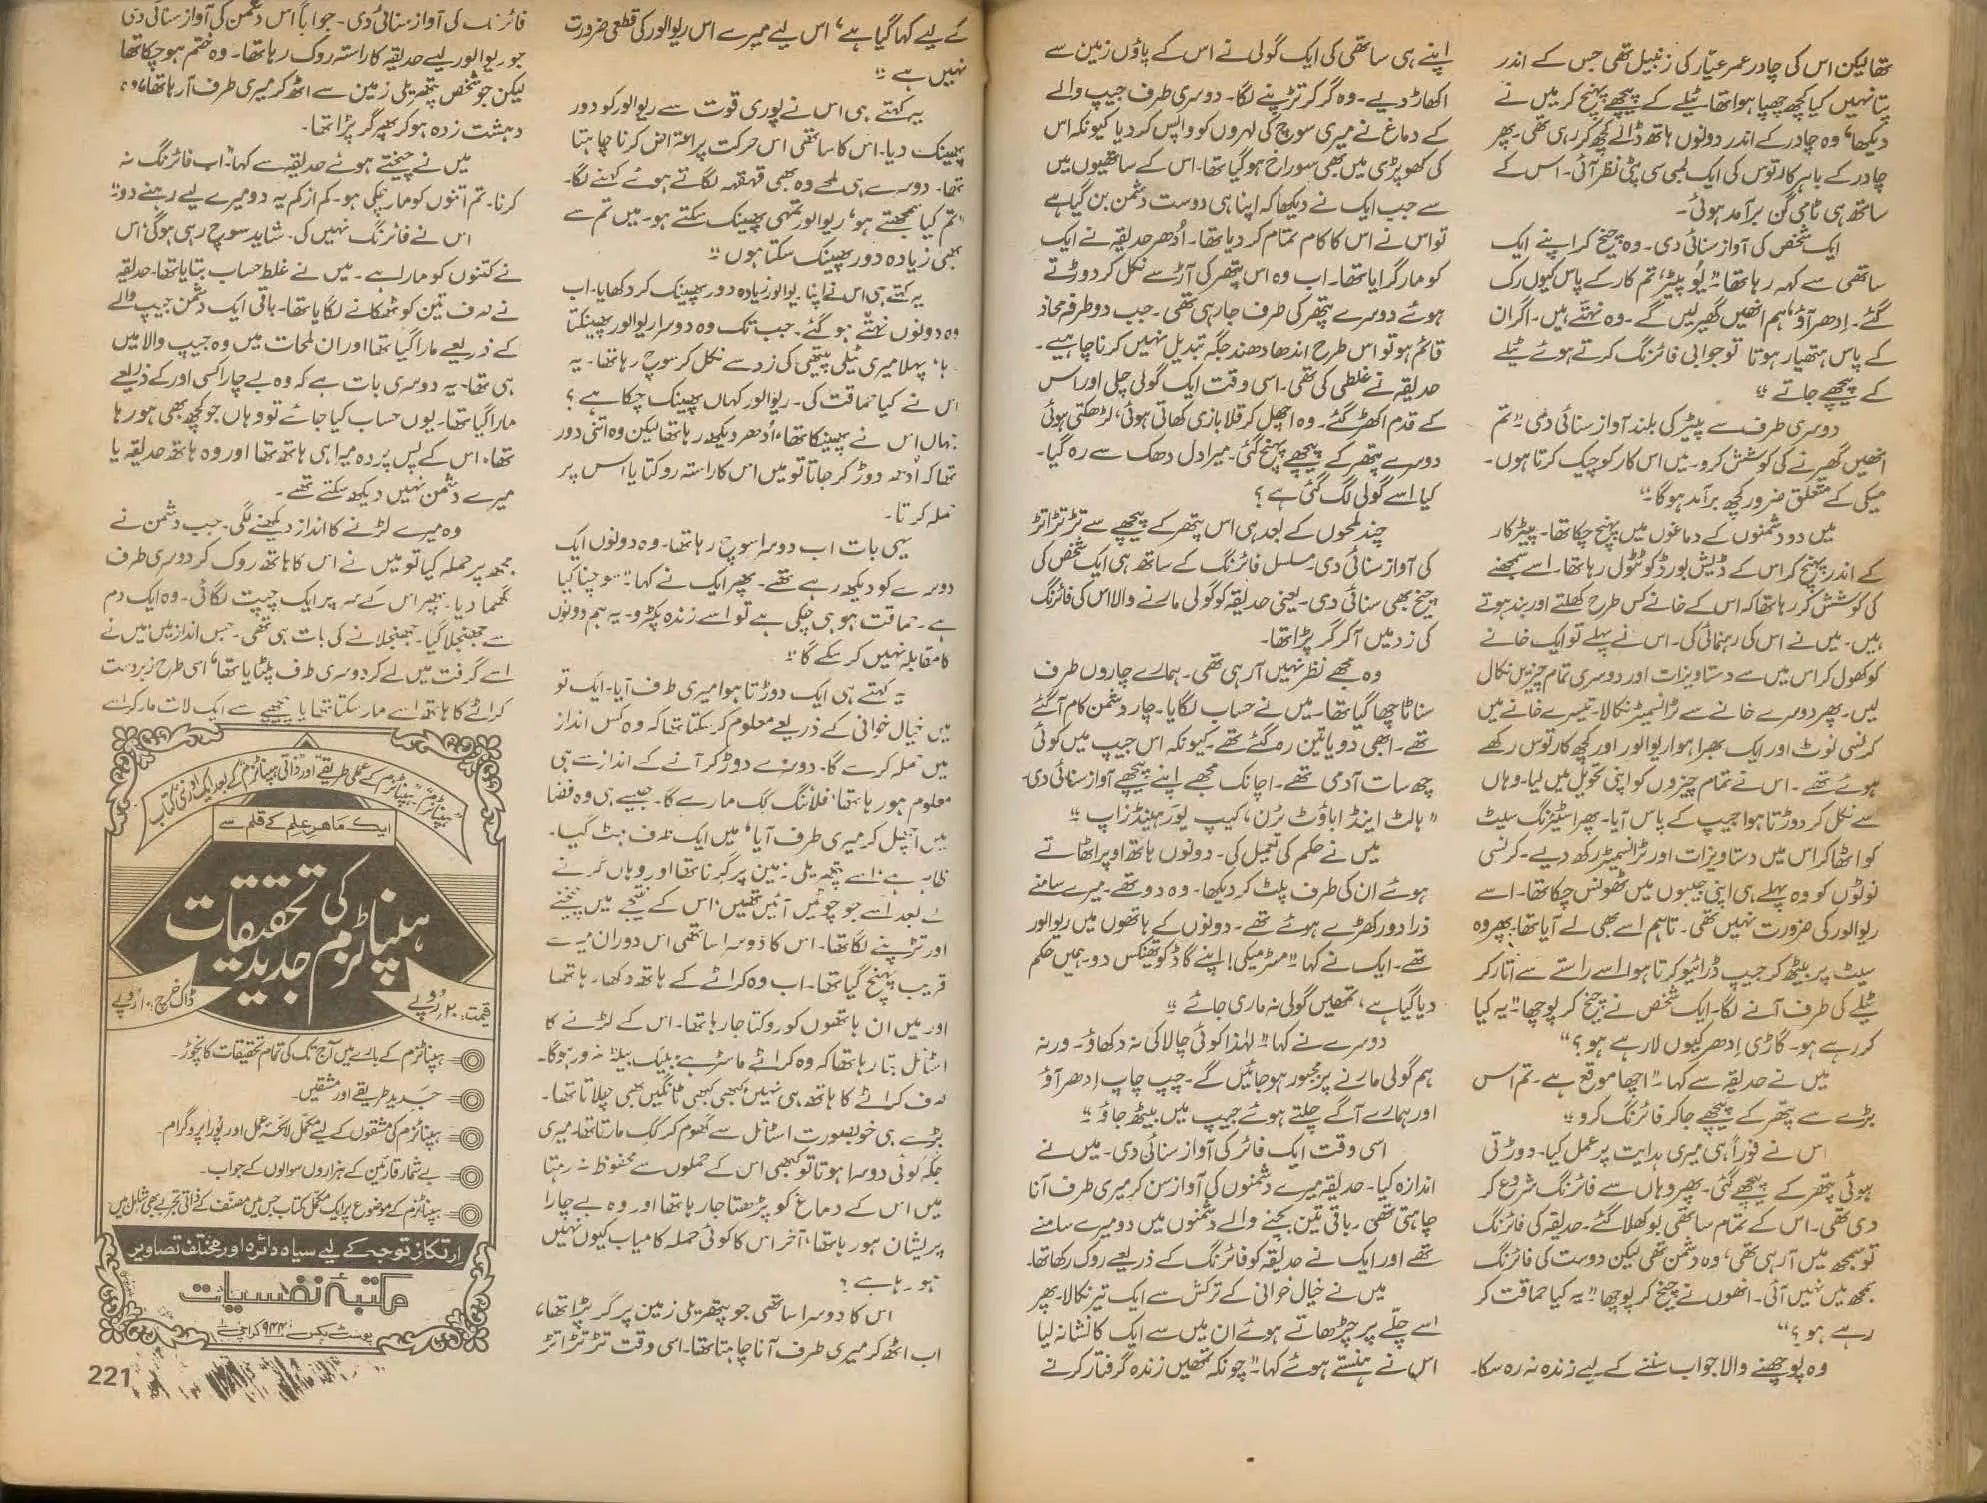 تھا لیکن اس کی چادر عمر عیّار کی زنبیل تھی جس کے اندر
پتا نہیں کیا کچھ چھپا ہوا تھا۔ ٹیلے کے پیچھے پہنچ کر میں نے
دیکھا، وہ چادر کے اندر دونوں ہاتھ ڈالے کچھ کر رہی تھی۔ پھر
چادر کے باہر کارتوس کی ایک لمبی سی پٹی نظر آئی۔ اس کے
ساتھ ہی ٹامی گن برآمد ہوئی۔
ایک شخص کی آواز سنائی دی۔ وہ چیخ کر اپنے ایک
ساتھی سے کہہ رہا تھا "یُو پیٹر، تم کار کے پاس کیوں رک
گئے۔ اِدھر آؤ، ہم انھیں گھیر لیں گے۔ وہ نہتّے ہیں۔ اگر ان
کے پاس ہتھیار ہوتا تو جوابی فائرنگ کرتے ہوئے ٹیلے
کے پیچھے جاتے"
دوسری طرف سے پیٹر کی بلند آواز سنائی دی "تم
انھیں گھیرنے کی کوشش کرو۔ میں اس کار کو چیک کرتا ہوں۔
میکی کے متعلق ضرور کچھ برآمد ہوگا۔"
میں دو دشمنوں کے دماغوں میں پہنچ چکا تھا۔ پیٹر کار
کے اندر پہنچ کر اس کے ڈیش بورڈ کو ٹٹول رہا تھا۔ اسے سمجھنے
کی کوشش کر رہا تھا کہ اس کے خانے کس طرح کھلتے اور بند ہوتے
ہیں۔ میں نے اس کی رہنمائی کی۔ اس نے پہلے تو ایک خانے
کو کھول کر اس میں سے دستاویزات اور دوسری تمام چیزیں نکال
لیں۔ پھر دوسرے خانے سے ٹرانسمیٹر نکالا۔ تیسرے خانے میں
کرنسی نوٹ اور ایک بھرا ہوا ریوالور اور کچھ کارتوس رکھے
ہوئے تھے۔ اس نے تمام چیزوں کو اپنی تحویل میں لیا۔ وہاں
سے نکل کر دوڑتا ہوا جیپ کے پاس آیا۔ پھر اسٹیئرنگ سیٹ
کو اٹھا کر اس میں دستاویزات اور ٹرانسمیٹر رکھ دیے۔ کرنسی
نوٹوں کو وہ پہلے ہی اپنی جیبوں میں ٹھونس چکا تھا۔ اسے
ریوالور کی ضرورت نہیں تھی۔ تاہم اسے بھی لے آیا تھا، پھر وہ
سیٹ پر بیٹھ کر جیپ ڈرائیو کرتا ہوا، اسے راستے سے اتار کر
ٹیلے کی طرف آنے لگا۔ ایک شخص نے چیخ کر پوچھا "یہ کیا
کر رہے ہو۔ گاڑی اِدھر کیوں لا رہے ہو؟"
میں نے حدیقہ سے کہا "اچھا موقع ہے۔ تم اس
بڑے سے پتھر کے پیچھے جا کر فائرنگ کرو"
اس نے فوراً ہی میری ہدایت پر عمل کیا۔ دوڑتی
ہوئی پتھر کے پیچھے گئی۔ پھر وہاں سے فائرنگ شروع کر
دی تھی۔ اس کے تمام ساتھی بوکھلا گئے۔ حدیقہ کی فائرنگ
تو سمجھ میں آ رہی تھی، وہ دشمن تھی لیکن دوست کی فائرنگ
سمجھ میں نہیں آئی۔ انھوں نے چیخ کر پوچھا "یہ کیا حماقت کر
رہے ہو؟"
وہ پوچھنے والا جواب سننے کے لیے زندہ نہ رہ سکا۔
اپنے ہی ساتھی کی ایک گولی نے اس کے پاؤں زمین سے
اکھاڑ دیے۔ وہ گر کر تڑپنے لگا۔ دوسری طرف جیپ والے
کے دماغ نے میری سوچ کی لہروں کو واپس کر دیا کیونکہ اس
کی کھوپڑی میں بھی سوراخ ہو گیا تھا۔ اس کے ساتھیوں میں
سے جب ایک نے دیکھا کہ اپنا ہی دوست دشمن بن گیا ہے
تو اس نے اس کا کام تمام کر دیا تھا۔ اُدھر حدیقہ نے ایک
کو مار گرایا تھا۔ اب وہ اس پتھر کی آڑ سے نکل کر دوڑتے
ہوئے دوسرے پتھر کی طرف جا رہی تھی۔ جب دو طرفہ محاذ
قائم ہو تو اس طرح اندھا دھند جگہ تبدیل نہیں کرنا چاہیے۔
حدیقہ نے غلطی کی تھی۔ اسی وقت ایک گولی چلی اور اس
کے قدم اکھڑ گئے۔ وہ اچھل کر قلابازی کھاتی ہوئی، لڑھکتی ہوئی
دوسرے پتھر کے پیچھے پہنچ گئی۔ میرا دل دھک سے رہ گیا۔
کیا اسے گولی لگ گئی ہے؟
چند لمحوں کے بعد ہی اس پتھر کے پیچھے سے تڑ تڑا تڑ
کی آواز سنائی دی۔ مسلسل فائرنگ کے ساتھ ہی ایک شخص کی
چیخ بھی سنائی دی۔ یعنی حدیقہ کو گولی مارنے والا اس کی فائرنگ
کی زد میں آ کر گر پڑا تھا۔
وہ مجھے نظر نہیں آ رہی تھی۔ ہمارے چاروں طرف
سناٹا چھا گیا تھا۔ میں نے حساب لگایا۔ چار دشمن کام آ گئے
تھے۔ ابھی دو یا تین رہ گئے تھے۔ کیونکہ اس جیپ میں کوئی
چھ سات آدمی تھے۔ اچانک مجھے اپنے پیچھے آواز سنائی دی۔
"ہالٹ اینڈ اباؤٹ ٹرن، کیپ یور ہینڈز اپ"
میں نے حکم کی تعمیل کی۔ دونوں ہاتھ اوپر اٹھاتے
ہوئے ان کی طرف پلٹ کر دیکھا۔ وہ دو تھے۔ میرے سامنے
ذرا دور کھڑے ہوئے تھے۔ دونوں کے ہاتھوں میں ریوالور
تھے۔ ایک نے کہا "مسٹر میکی! اپنے گاڈ کو تھینکس دو۔ ہمیں حکم
دیا گیا ہے، تمھیں گولی نہ ماری جائے"
دوسرے نے کہا "لہٰذا کوئی چالاکی نہ دکھاؤ۔ ورنہ
ہم گولی مارنے پر مجبور ہو جائیں گے۔ چپ چاپ اِدھر آؤ
اور ہمارے آگے چلتے ہوئے جیپ میں بیٹھ جاؤ"
اسی وقت ایک فائر کی آواز سنائی دی۔ میں نے
اندازہ کیا۔ حدیقہ میرے دشمنوں کی آواز سن کر میری طرف آنا
چاہتی تھی۔ باقی تین بچنے والے دشمنوں میں دو میرے سامنے
تھے اور ایک نے حدیقہ کو فائرنگ کے ذریعے روک رکھا تھا۔
میں نے خیال خوانی کے ترکش سے ایک تیر نکالا۔ پھر
اسے چلّے پر چڑھاتے ہوئے ان میں سے ایک کا نشانہ لیا
اس نے ہنستے ہوئے کہا "چونکہ تمھیں زندہ گرفتار کرنے
کے لیے کہا گیا ہے، اس لیے میرے اس ریوالور کی قطعی ضرورت
نہیں ہے"
یہ کہتے ہی اس نے پوری قوت سے ریوالور کو دور
پھینک دیا۔ اس کا ساتھی اس حرکت پر اعتراض کرنا چاہتا
تھا۔ دوسرے ہی لمحے وہ بھی قہقہہ لگاتے ہوئے کہنے لگا۔
"تم کیا سمجھتے ہو، ریوالور تمہی پھینک سکتے ہو۔ میں تم سے
بھی زیادہ دور پھینک سکتا ہوں"
یہ کہتے ہی اس نے اپنا ریوالور زیادہ دور پھینک کر دکھایا۔ اب
وہ دونوں نہتّے ہو گئے۔ جب تک وہ دوسرا ریوالور پھینکتا
رہا، پہلا میری ٹیلی پیتھی کی زد سے نکل کر سوچ رہا تھا۔ یہ
اس نے کیا حماقت کی۔ ریوالور کہاں پھینک چکا ہے؟
جہاں اس نے پھینکا تھا، اُدھر دیکھ رہا تھا لیکن وہ اتنی دور
تھا کہ اُدھر دوڑ کر جاتا تو میں اس کا راستہ روکتا یا اس پر
حملہ کرتا۔
یہی بات اب دوسرا سوچ رہا تھا۔ وہ دونوں ایک
دوسرے کو دیکھ رہے تھے۔ پھر ایک نے کہا "سوچنا کیا
ہے۔ حماقت ہو ہی چکی ہے تو اسے زندہ پکڑو۔ یہ ہم دونوں
کا مقابلہ نہیں کر سکے گا"
یہ کہتے ہی ایک دوڑتا ہوا میری طرف آیا۔ ایک تو
میں خیال خوانی کے ذریعے معلوم کر سکتا تھا کہ وہ کس انداز
میں حملہ کرے گا۔ دوسرے دوڑ کر آنے کے انداز سے ہی
معلوم ہو رہا تھا، فلائنگ کک مارے گا۔ جیسے ہی وہ فضا
میں اچھل کر میری طرف آیا، میں ایک طرف ہٹ گیا۔
ظاہر ہے، اسے پتھریلی زمین پر گرنا تھا اور وہاں گرنے
کے بعد اسے جو چوٹیں آئیں تھیں، اس کے نتیجے میں چیخنے
اور تڑپنے لگا تھا۔ اس کا دوسرا ساتھی اس دوران میرے
قریب پہنچ گیا تھا۔ اب وہ کراٹے کے ہاتھ دکھا رہا تھا
اور میں ان ہاتھوں کو روکتا جا رہا تھا۔ اس کے لڑنے کا
اسٹائل بتا رہا تھا کہ وہ کراٹے ماسٹر ہے، بلیک بیلٹ ضرور ہوگا۔
صرف کراٹے کا ہاتھ ہی نہیں، کبھی کبھی ٹانگیں بھی چلاتا تھا۔
بڑے ہی خوبصورت اسٹائل سے گھوم کر کک مارتا تھا۔ میری
جگہ کوئی دوسرا ہوتا تو کبھی اس کے حملوں سے محفوظ نہ رہتا
میں اس کے دماغ کو پڑھتا جا رہا تھا اور وہ بے چارا
پریشان ہو رہا تھا، آخر اس کا کوئی حملہ کامیاب کیوں نہیں
ہو رہا ہے؟
اس کا دوسرا ساتھی جو پتھریلی زمین پر گر پڑا تھا،
اب اٹھ کر میری طرف آنا چاہتا تھا۔ اسی وقت تڑ تڑا تڑ
فائرنگ کی آواز سنائی دی۔ جواباً اس دشمن کی آواز سنائی دی
جو ریوالور لیے حدیقہ کا راستہ روک رہا تھا۔ وہ ختم ہو چکا تھا
لیکن جو شخص پتھریلی زمین سے اٹھ کر میری طرف آ رہا تھا، وہ
دہشت زدہ ہو کر پھر گر پڑا تھا۔
میں نے چیختے ہوئے حدیقہ سے کہا "اب فائرنگ نہ
کرنا۔ تم اتنوں کو مار چکی ہو۔ کم از کم یہ دو میرے لیے رہنے دو"
اس نے فائرنگ نہیں کی۔ شاید سوچ رہی ہوگی، اس
نے کتنوں کو مارا ہے۔ میں نے غلط حساب بتایا تھا۔ حدیقہ
نے صرف تین کو ٹھکانے لگایا تھا۔ باقی ایک دشمن جیپ والے
کے ذریعے مارا گیا تھا اور ان لمحات میں وہ جیپ والا میں
ہی تھا۔ یہ دوسری بات ہے کہ وہ بے چارا کسی اور کے ذریعے
مارا گیا تھا۔ یوں حساب کیا جائے تو وہاں جو کچھ بھی ہو رہا
تھا، اس کے پس پردہ میرا ہی ہاتھ تھا اور وہ ہاتھ حدیقہ یا
میرے دشمن نہیں دیکھ سکتے تھے۔
وہ میرے لڑنے کا انداز دیکھنے لگی۔ جب دشمن نے
مجھ پر حملہ کیا تو میں نے اس کا ہاتھ روک کر دوسری طرف
گھما دیا۔ پھر اس کے سر پر ایک چپت لگائی۔ وہ ایک دم
سے جھنجلا گیا۔ جھنجلانے کی بات ہی تھی۔ جس انداز میں میں نے
اسے گرفت میں لے کر دوسری طرف پلٹایا تھا، اسی طرح زبردست
کراٹے کا ہاتھ اسے مار سکتا تھا یا پیچھے سے ایک لات مار کر اسے
"ہپناٹزم" "ہپناٹزم کے عملی طریقے" اور "ذاتی ہپناٹزم" کے بعد ایک اور نئی کتاب
ایک ماہر علم کے قلم سے
ہپناٹزم کی جدید تحقیقات
قیمت: ۲۰ روپے
ڈاک خرچ: ۱۰ روپے
ہپناٹزم کے بارے میں آج تک کی تمام تحقیقات کا نچوڑ۔
جدید طریقے اور مشقیں۔
ہپناٹزم کی مشقوں کے لیے مکمّل لائحۂ عمل اور پورا پروگرام۔
بے شمار قارئین کے ہزاروں سوالوں کے جواب۔
ہپناٹزم کے موضوع پر ایک مکمّل کتاب جس میں مصنّف کے ذاتی تجربے بھی شامل ہیں
ارتکاز توجہ کے لیے سیاہ دائرہ اور مختلف تصاویر
مکتبۂ نفسیات
پوسٹ بکس ۹۴۴ کراچی ۱
221